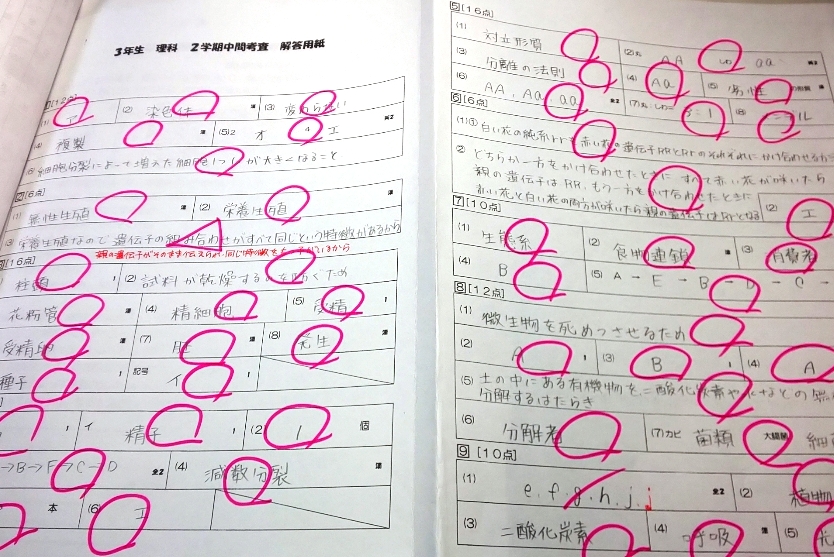 3年生 理科 2学期中間考査 解答用紙
(1) ア (2) 染色体 (3) 変わらない
(4) 複製 (5)2 オ 4 エ
細胞分裂によって増えた細胞1つ1つが大きくなること
[6点]
(1) 無性生殖 (2) 栄養生殖
(3) 栄養生殖なので遺伝子の組み合わせがすべて同じという特徴があるから
親の遺伝子がそのまま伝えられ、同じ特徴をもつ
[16点]
柱頭 (2) 試料が乾燥するのを防ぐため
花粉管 (4) 精細胞 (5) 受精
受精卵 (7) 胚 (8) 発生
種子 記号 イ
イ 精子 (2) 1 個
→B→F→C→D 全2 (4) 減数分裂
本 (6) エ
5 [16点]
(1) 対立形質 (2)丸 AA しわ aa
(3) 分離の法則 (4) Aa (5) 劣性 の形質
(6) AA, Aa, aa 全2 (7)丸:しわ= : 1 (8)
6 [6点]
(1)① 白い花の純系rrを赤い花の遺伝子RRとRrのそれぞれにかけ合わせる
② どちらか一方をかけ合わせたときに すべて赤い花が咲いたら
親の遺伝子はRR、もう一方をかけ合わせたときに
赤い花と白い花の両方が咲いたら親の遺伝子はRrとなる (2) エ
7 [10点]
(1) 生態系 (2) 食物連鎖 (3) 消費者
(4) B (5) A → E → B → D → C →
8 [12点]
(1) 微生物を死めつさせるため
(2) A (3) B (4) A
(5) 土の中にある有機物を二酸化炭素や水などの無
分解するはたらき
(6) 分解者 (7)カビ 菌類 大腸菌 細
9 [10点]
(1) e.f.g.h.j.j 全2 (2) 植物
(3) 二酸化炭素 (4) 呼吸 (5) 光